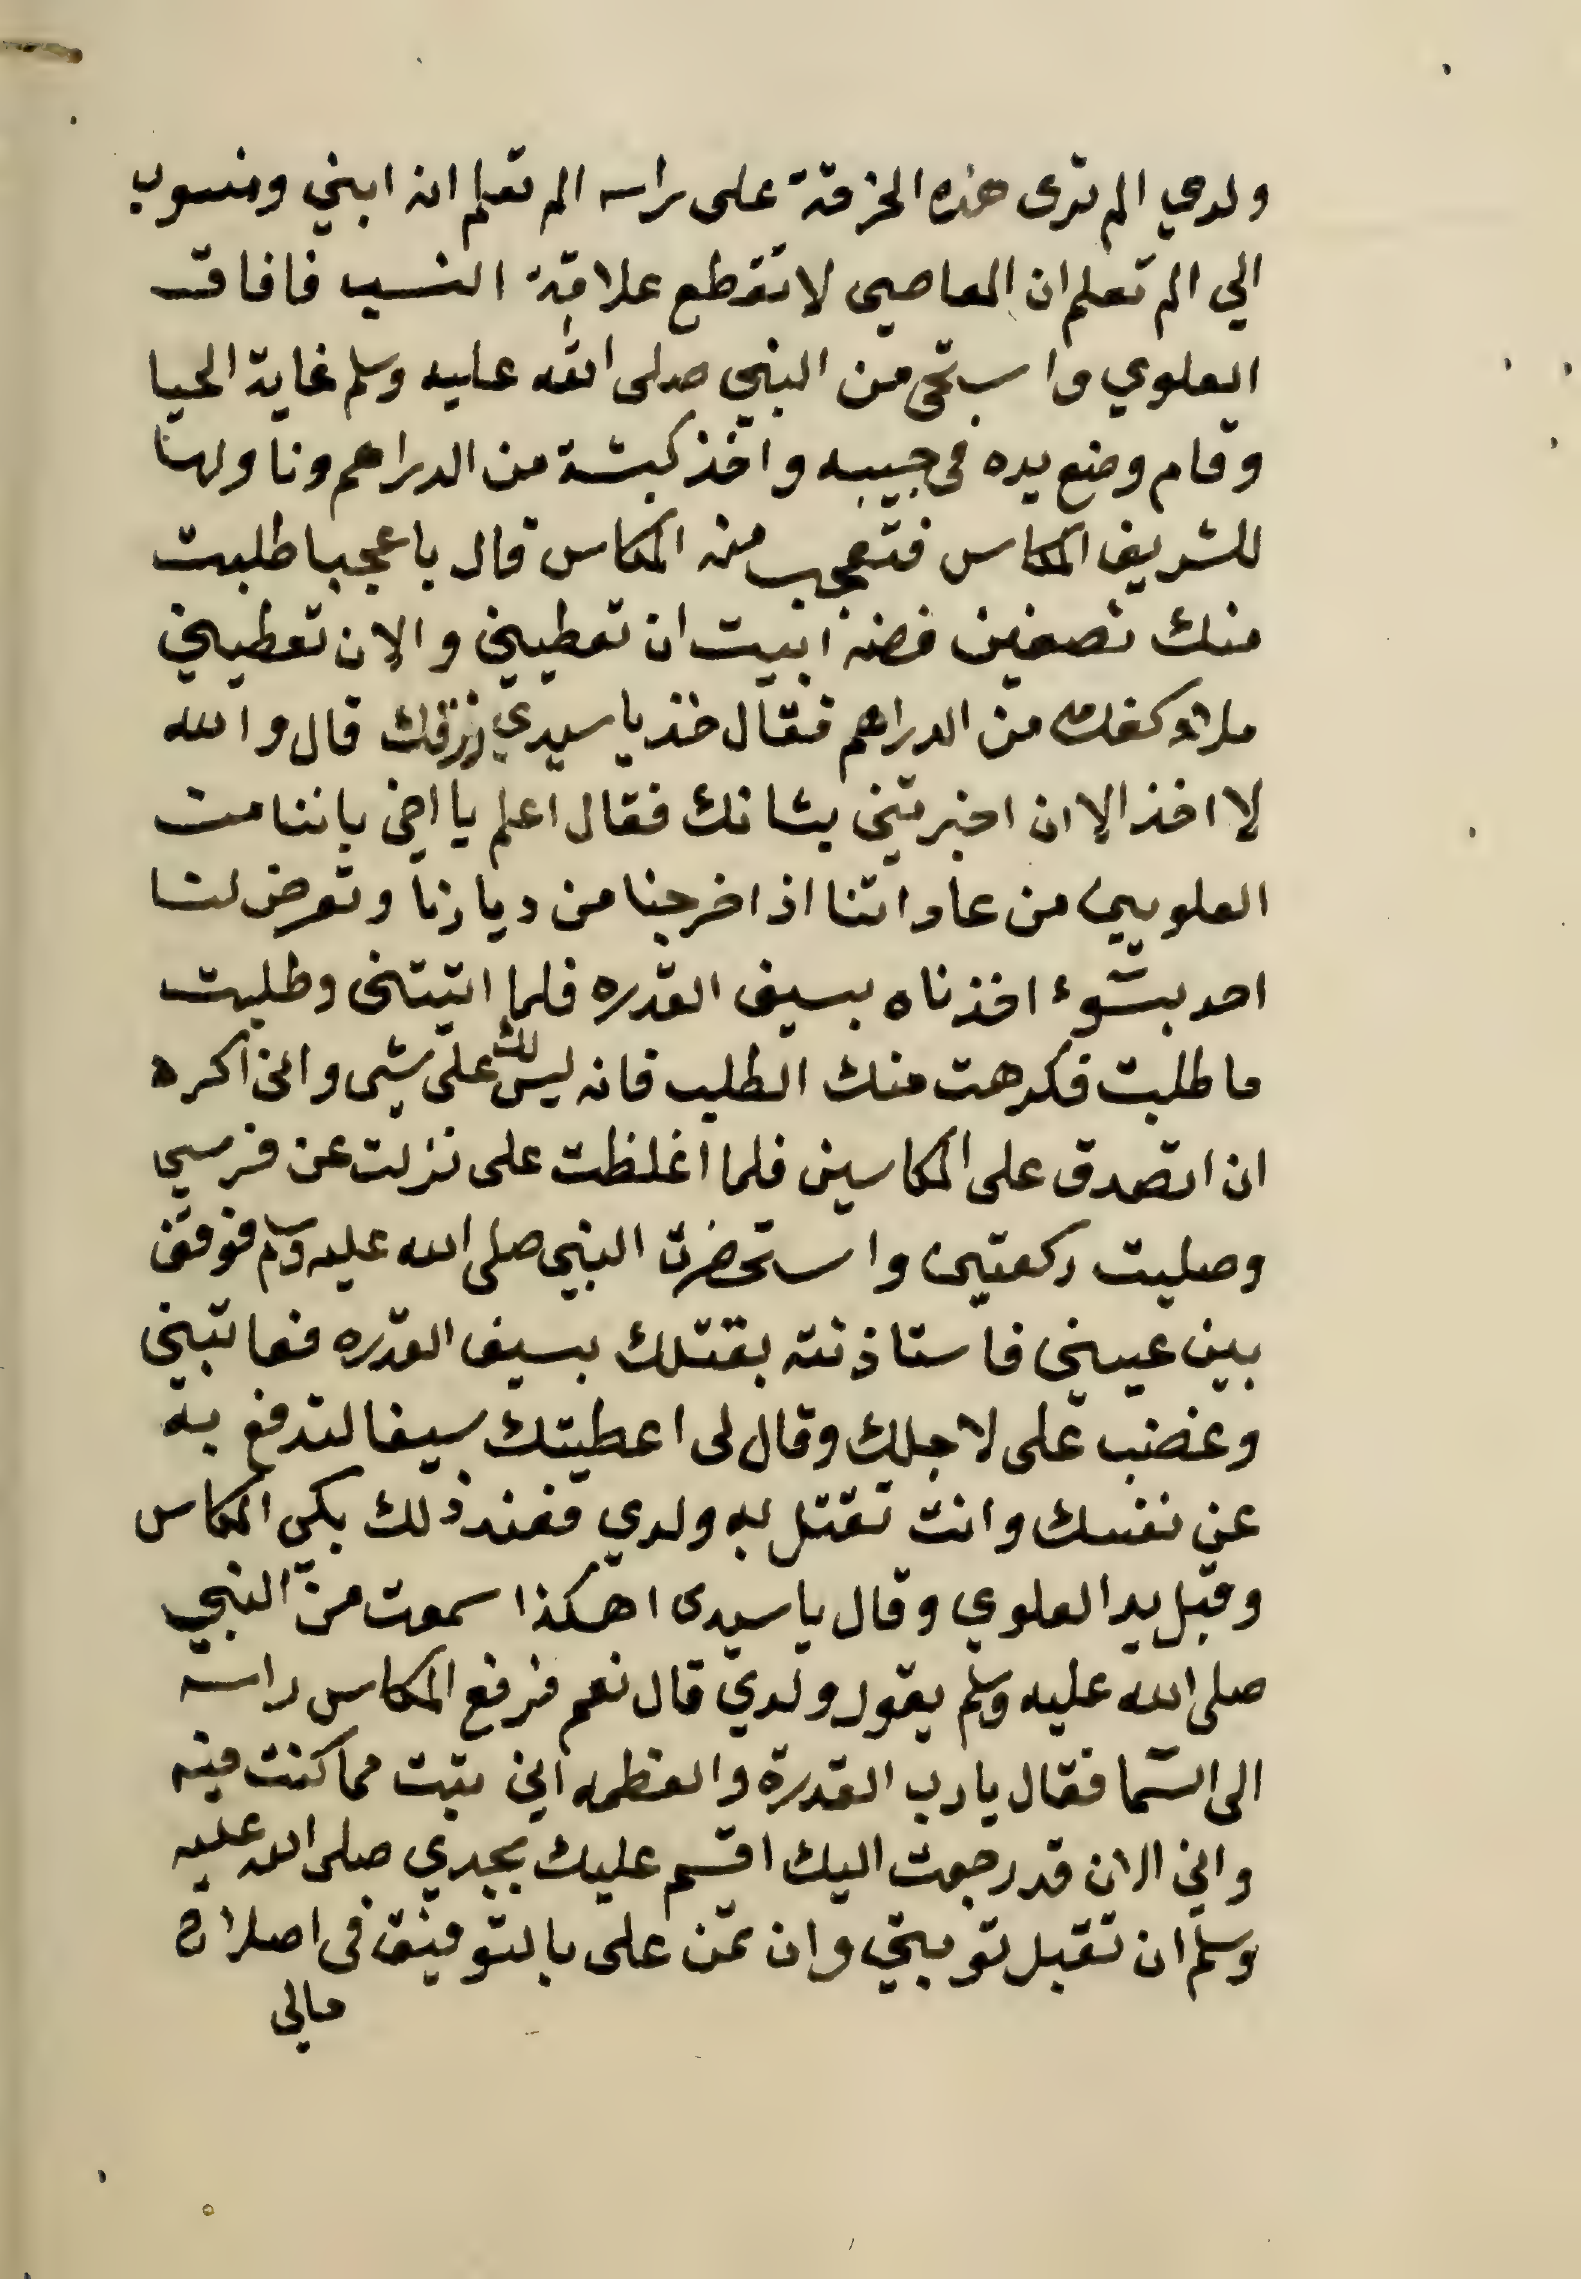 ولدي الم ترى هذه الخرقة على راسه الم تعلم انه ابني ومنسوب
الي الم تعلم ان المعاصي لا تقطع علاقة النسب فافاق
العلوي واستحى من النبي صلى الله عليه وسلم غاية الحيا
وقام وضع يده في جيبه واخذ كبشة من الدراهم وناولها
للشريف المكاس فتعجب منه المكاس قال يا عجبا طلبت
منك نصفين فضة ابيت ان تعطيني والان تعطيني
ملاء كفك من الدراهم فقال خذ يا سيدي رزقك قال والله
لا اخذ الا ان اخبرتني بشانك فقال اعلم يا اخي باننا من
العلويين من عاداتنا اذا خرجنا من ديارنا وتعرض لنا
احد بسوء اخذناه بسيف القدره فلما اتيتني وطلبت
ما طلبت فكرهت منك الطلب فانه ليس لك على شي واني اكره
ان اتصدق على المكاسين فلما اغلظت على نزلت عن فرسي
وصليت ركعتين واستحضرت النبي صلى الله عليه وسلم فوقف
بين عيني فاستاذنته بقتلك بسيف القدره فعاتبني
وغضب على لاجلك وقال لي اعطيتك سيفا لتدفع به
عن نفسك وانت تقتل به ولدي فعند ذلك بكى المكاس
وقبل يد العلوي وقال يا سيدى اهكذا سمعت من النبي
صلى الله عليه وسلم يقول ولدي قال نعم فرفع المكاس راسه
الى السما فقال يا رب القدرة والعظمه اني تبت مما كنت فيه
واني الان قد رجعت اليك اقسم عليك بجدي صلى الله عليه
وسلم ان تقبل توبتي وان تمن على بالتوفيق في اصلاح
مالي